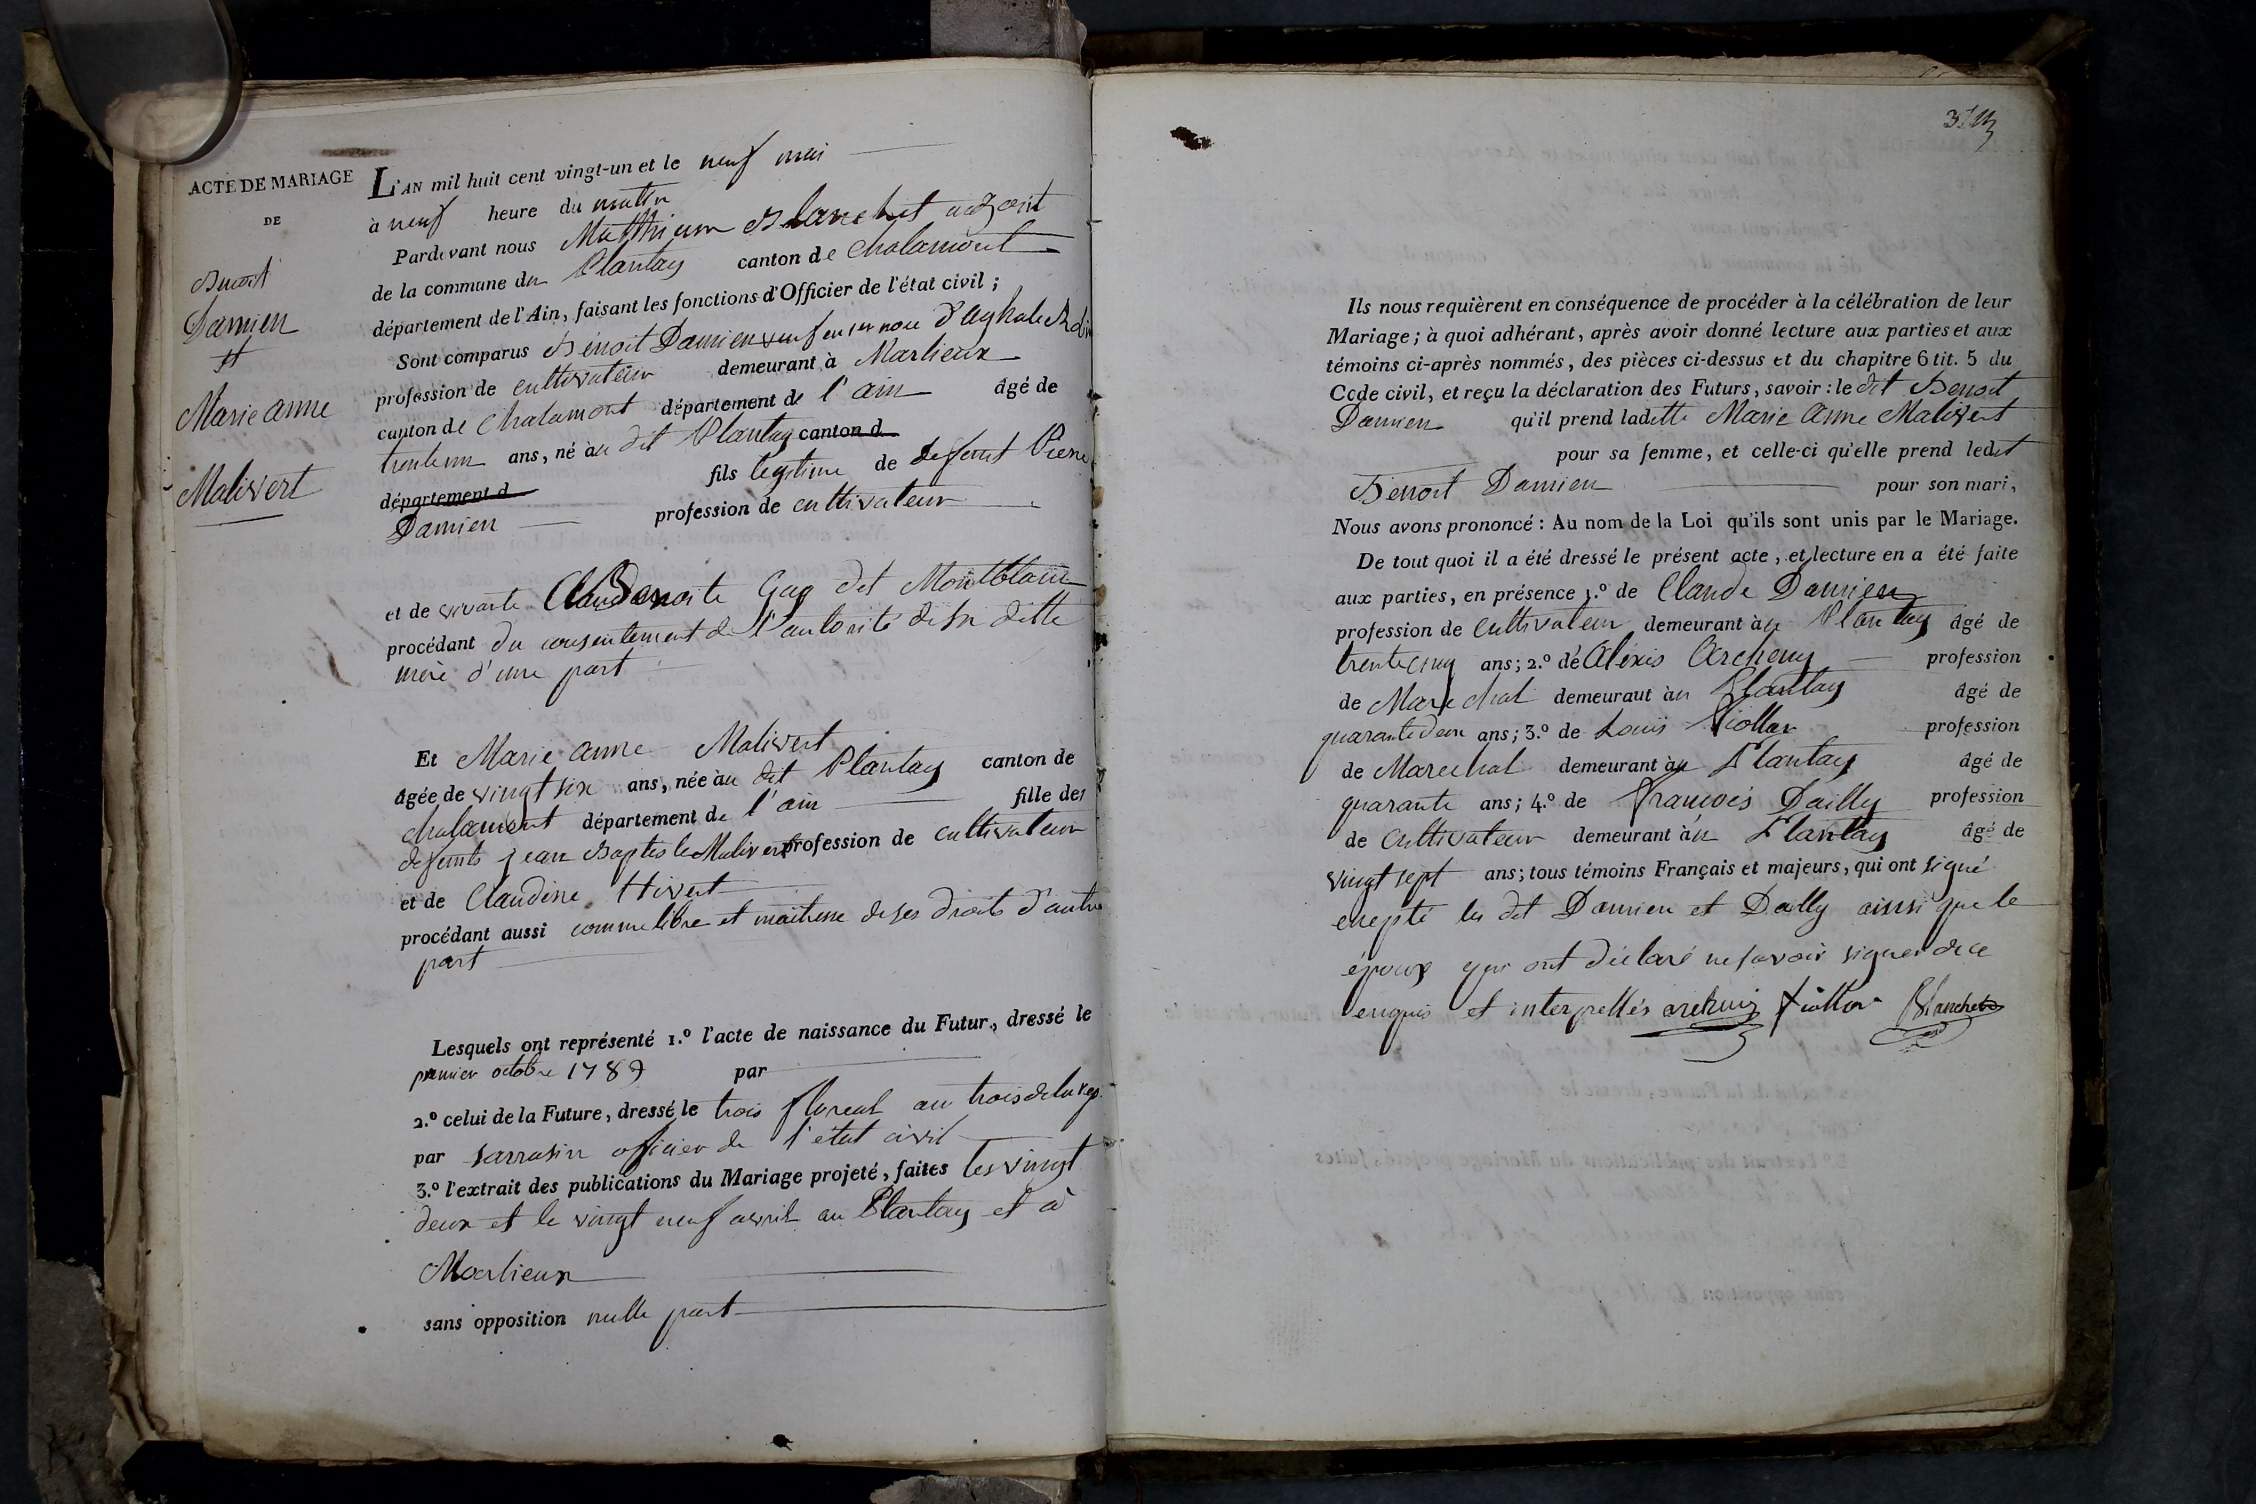 ACTE DE MARIAGE
DE
Benoit
Damien
et
Marie anne
Malivert
L'AN mil huit cent vingt-un et le neuf mai
à neuf heure du matin
Pardevant nous Matthieu Blanchet adjoint
de la commune du Plantay canton de Chalamont
département de l'Ain, faisant les fonctions d'Officier de l'état civil ;
Sont comparus Benoit Damien veuf en
profession de cultivateur demeurant à Marlieux
canton de Chalamont département de l'ain âgé de
trente un ans, né au dit Plantay canton d
département d fils legitime de deffunt Pierre
Damien profession de cultivateur
et de vivante Benoite Gay dit Montblanc
procédant du consentement de l'autorité de sa ditte
mère d'une part
Et Marie anne Malivert
âgée de vingt six ans, née au dit Plantay canton de
chalamont département de l'ain fille des
defunts jean Baptiste Malivert profession de cultivateur
et de Claudine Hivert
procédant aussi comme libre et maitresse de ses droits d'autre
part
Lesquels ont représenté 1.º l'acte de naissance du Futur, dressé le
premier octobre 1789 par
2.º celui de la Future, dressé le trois floreal an trois de la rep.
par Sarrasin officier de l'etat civil
3.º l'extrait des publications du Mariage projeté, faites les vingt
deux et le vingt neuf avril au Plantay et à
Marlieux
sans opposition nulle part
Ils nous requièrent en conséquence de procéder à la célébration de leur
Mariage ; à quoi adhérant, après avoir donné lecture aux parties et aux
témoins ci-après nommés, des pièces ci-dessus et du chapitre 6 tit. 5 du
Code civil, et reçu la déclaration des Futurs, savoir : le dit Benoit
Damien qu'il prend laditte Marie Anne Malivert
pour sa femme, et celle-ci qu'elle prend ledit
Benoit Damien pour son mari,
Nous avons prononcé : Au nom de la Loi qu'ils sont unis par le Mariage.
De tout quoi il a été dressé le présent acte, et lecture en a été faite
aux parties, en présence 1.º de Claude Damien
profession de cultivateur demeurant au Plantay âgé de
trente cinq ans ; 2.º de Alexis Archeny profession
de Marechal demeurant au Plantay âgé de
quarante deux ans ; 3.º de Louis Fiollar profession
de Marechal demeurant au Plantay âgé de
quarante ans ; 4.º de François Dailly profession
de cultivateur demeurant au Plantay âgé de
vingt sept ans ; tous témoins Français et majeurs, qui ont signé
exepté les dit Damien et Dailly ainsi que le
époux qui ont déclaré ne savoir signer de ce
enquis et interpellés Blanchet